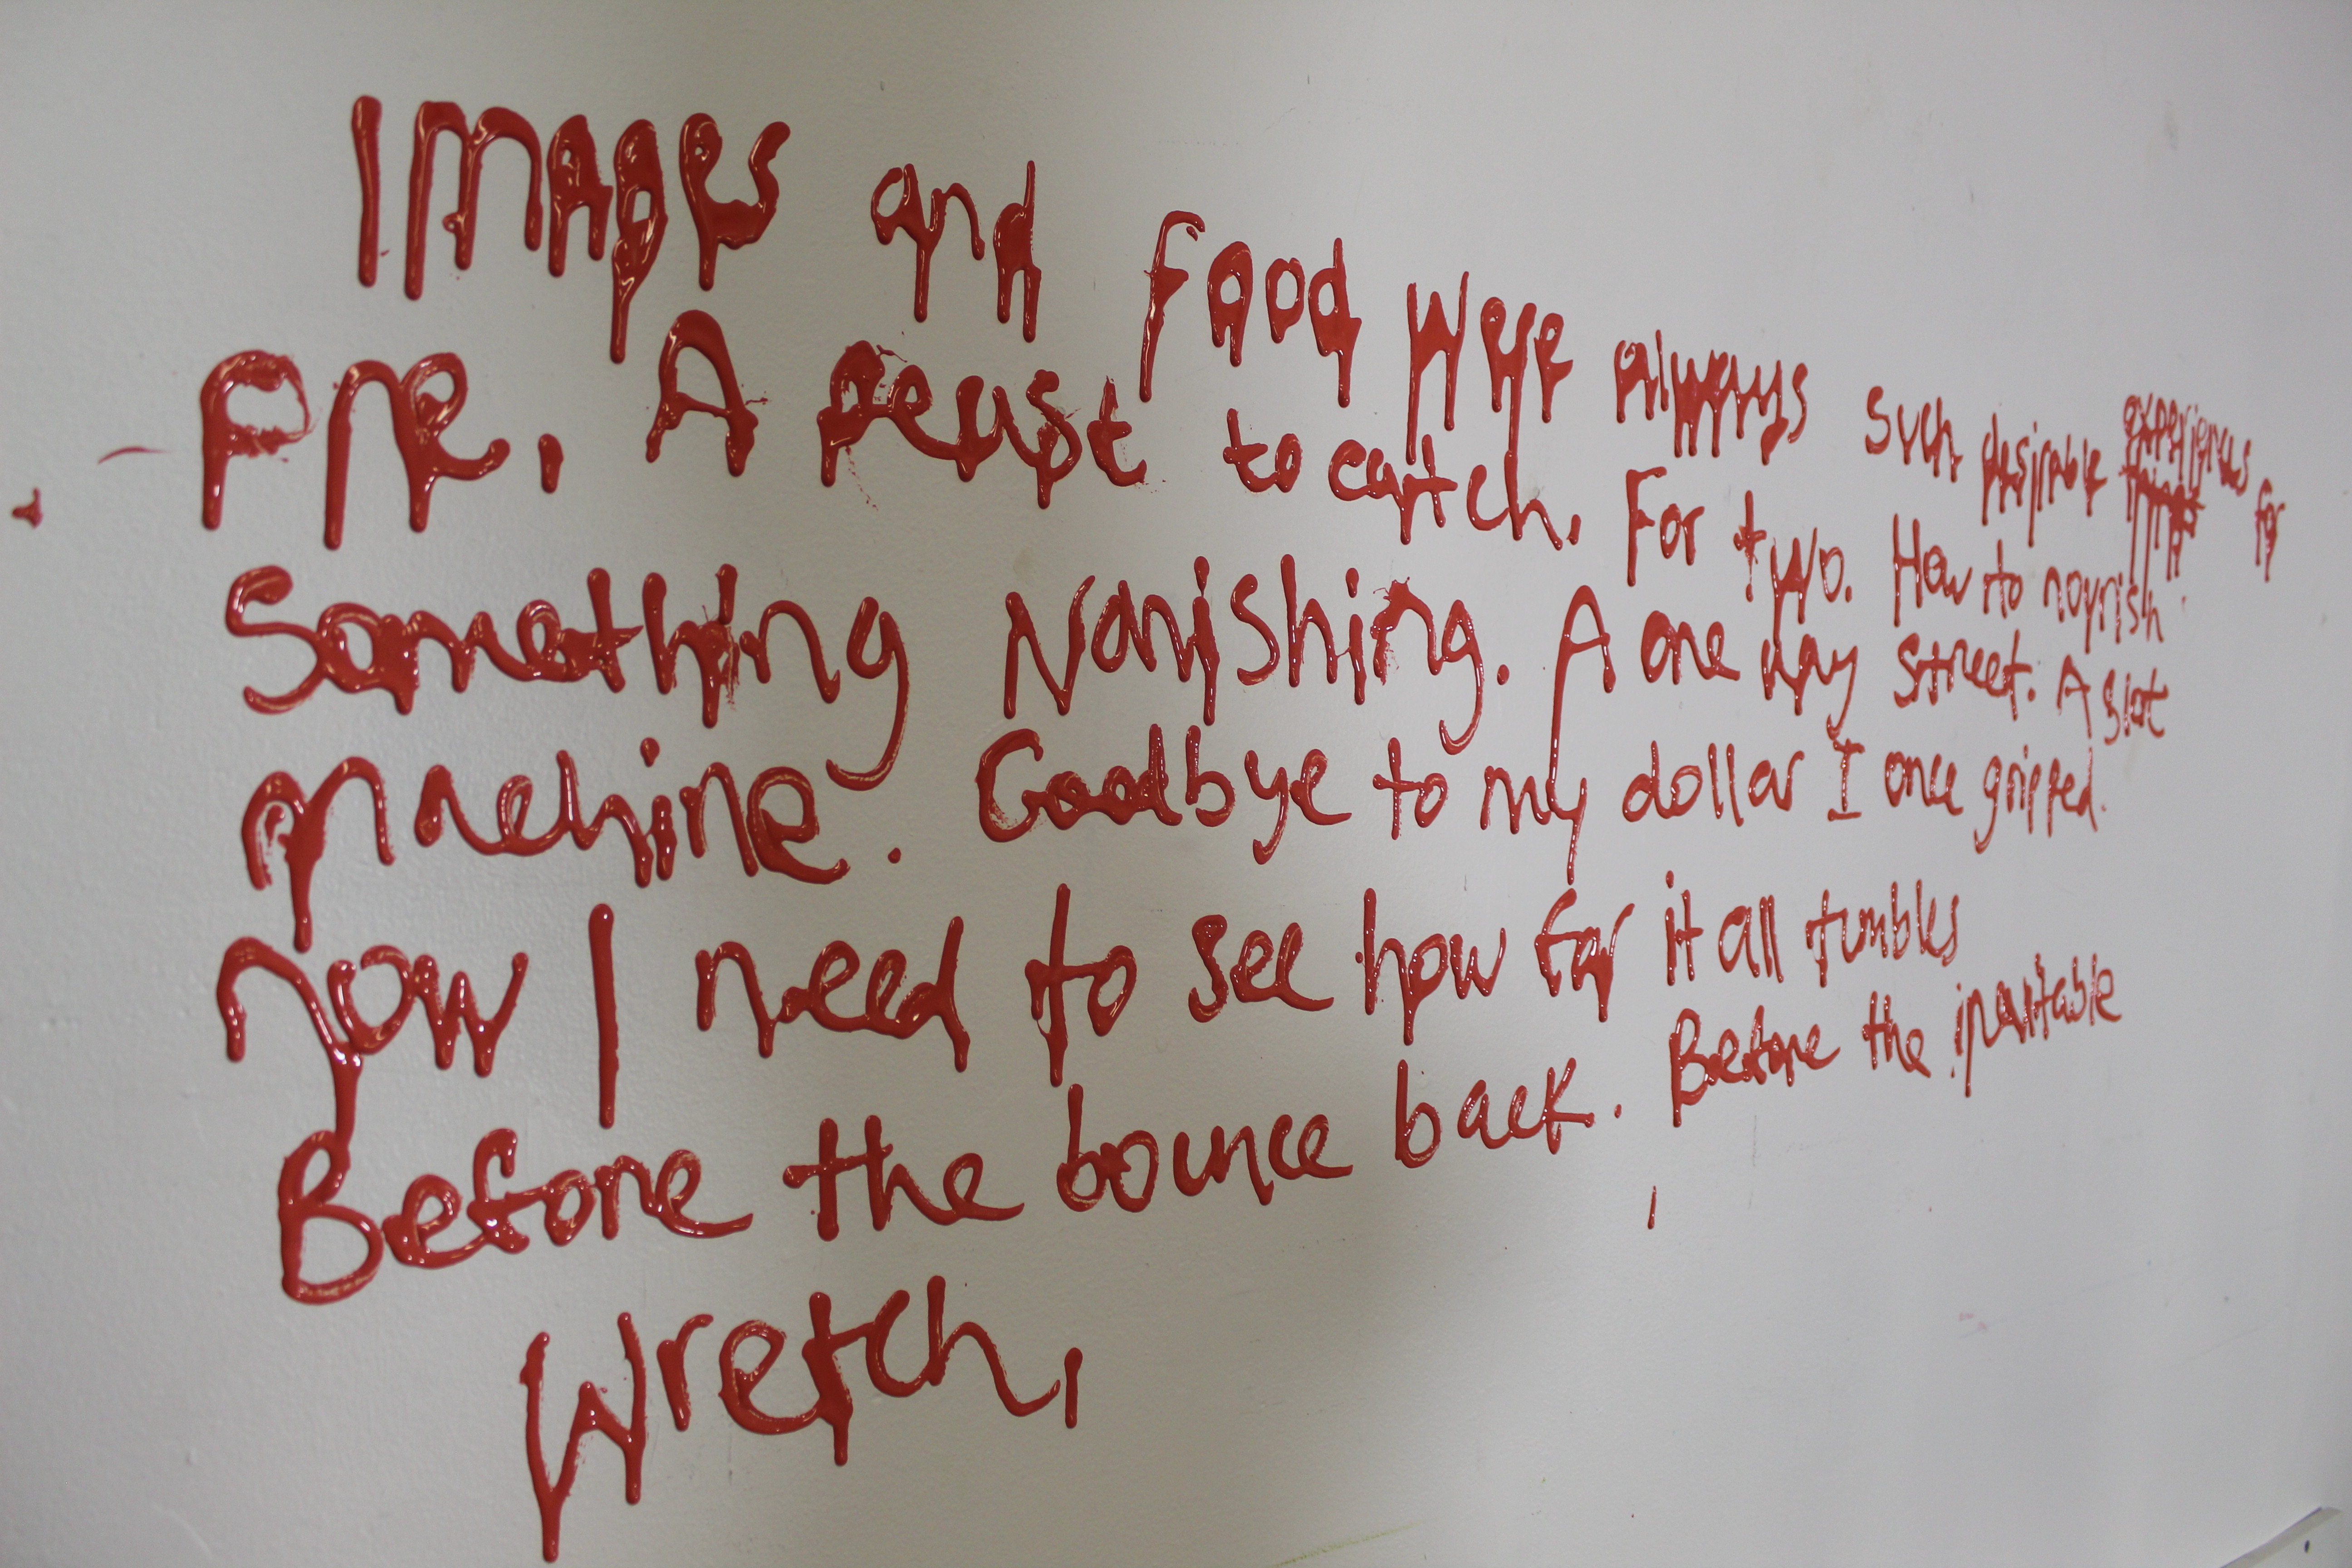 Images and food were always such desirable experiences for
me. A feast to catch. For two. How to nourish
Something Vanishing. A one way street. A slot
machine. Goodbye to my dollar I once gripped.
now I need to see how far it all tumbles
Before the bounce back. Before the inevitable
wretch,